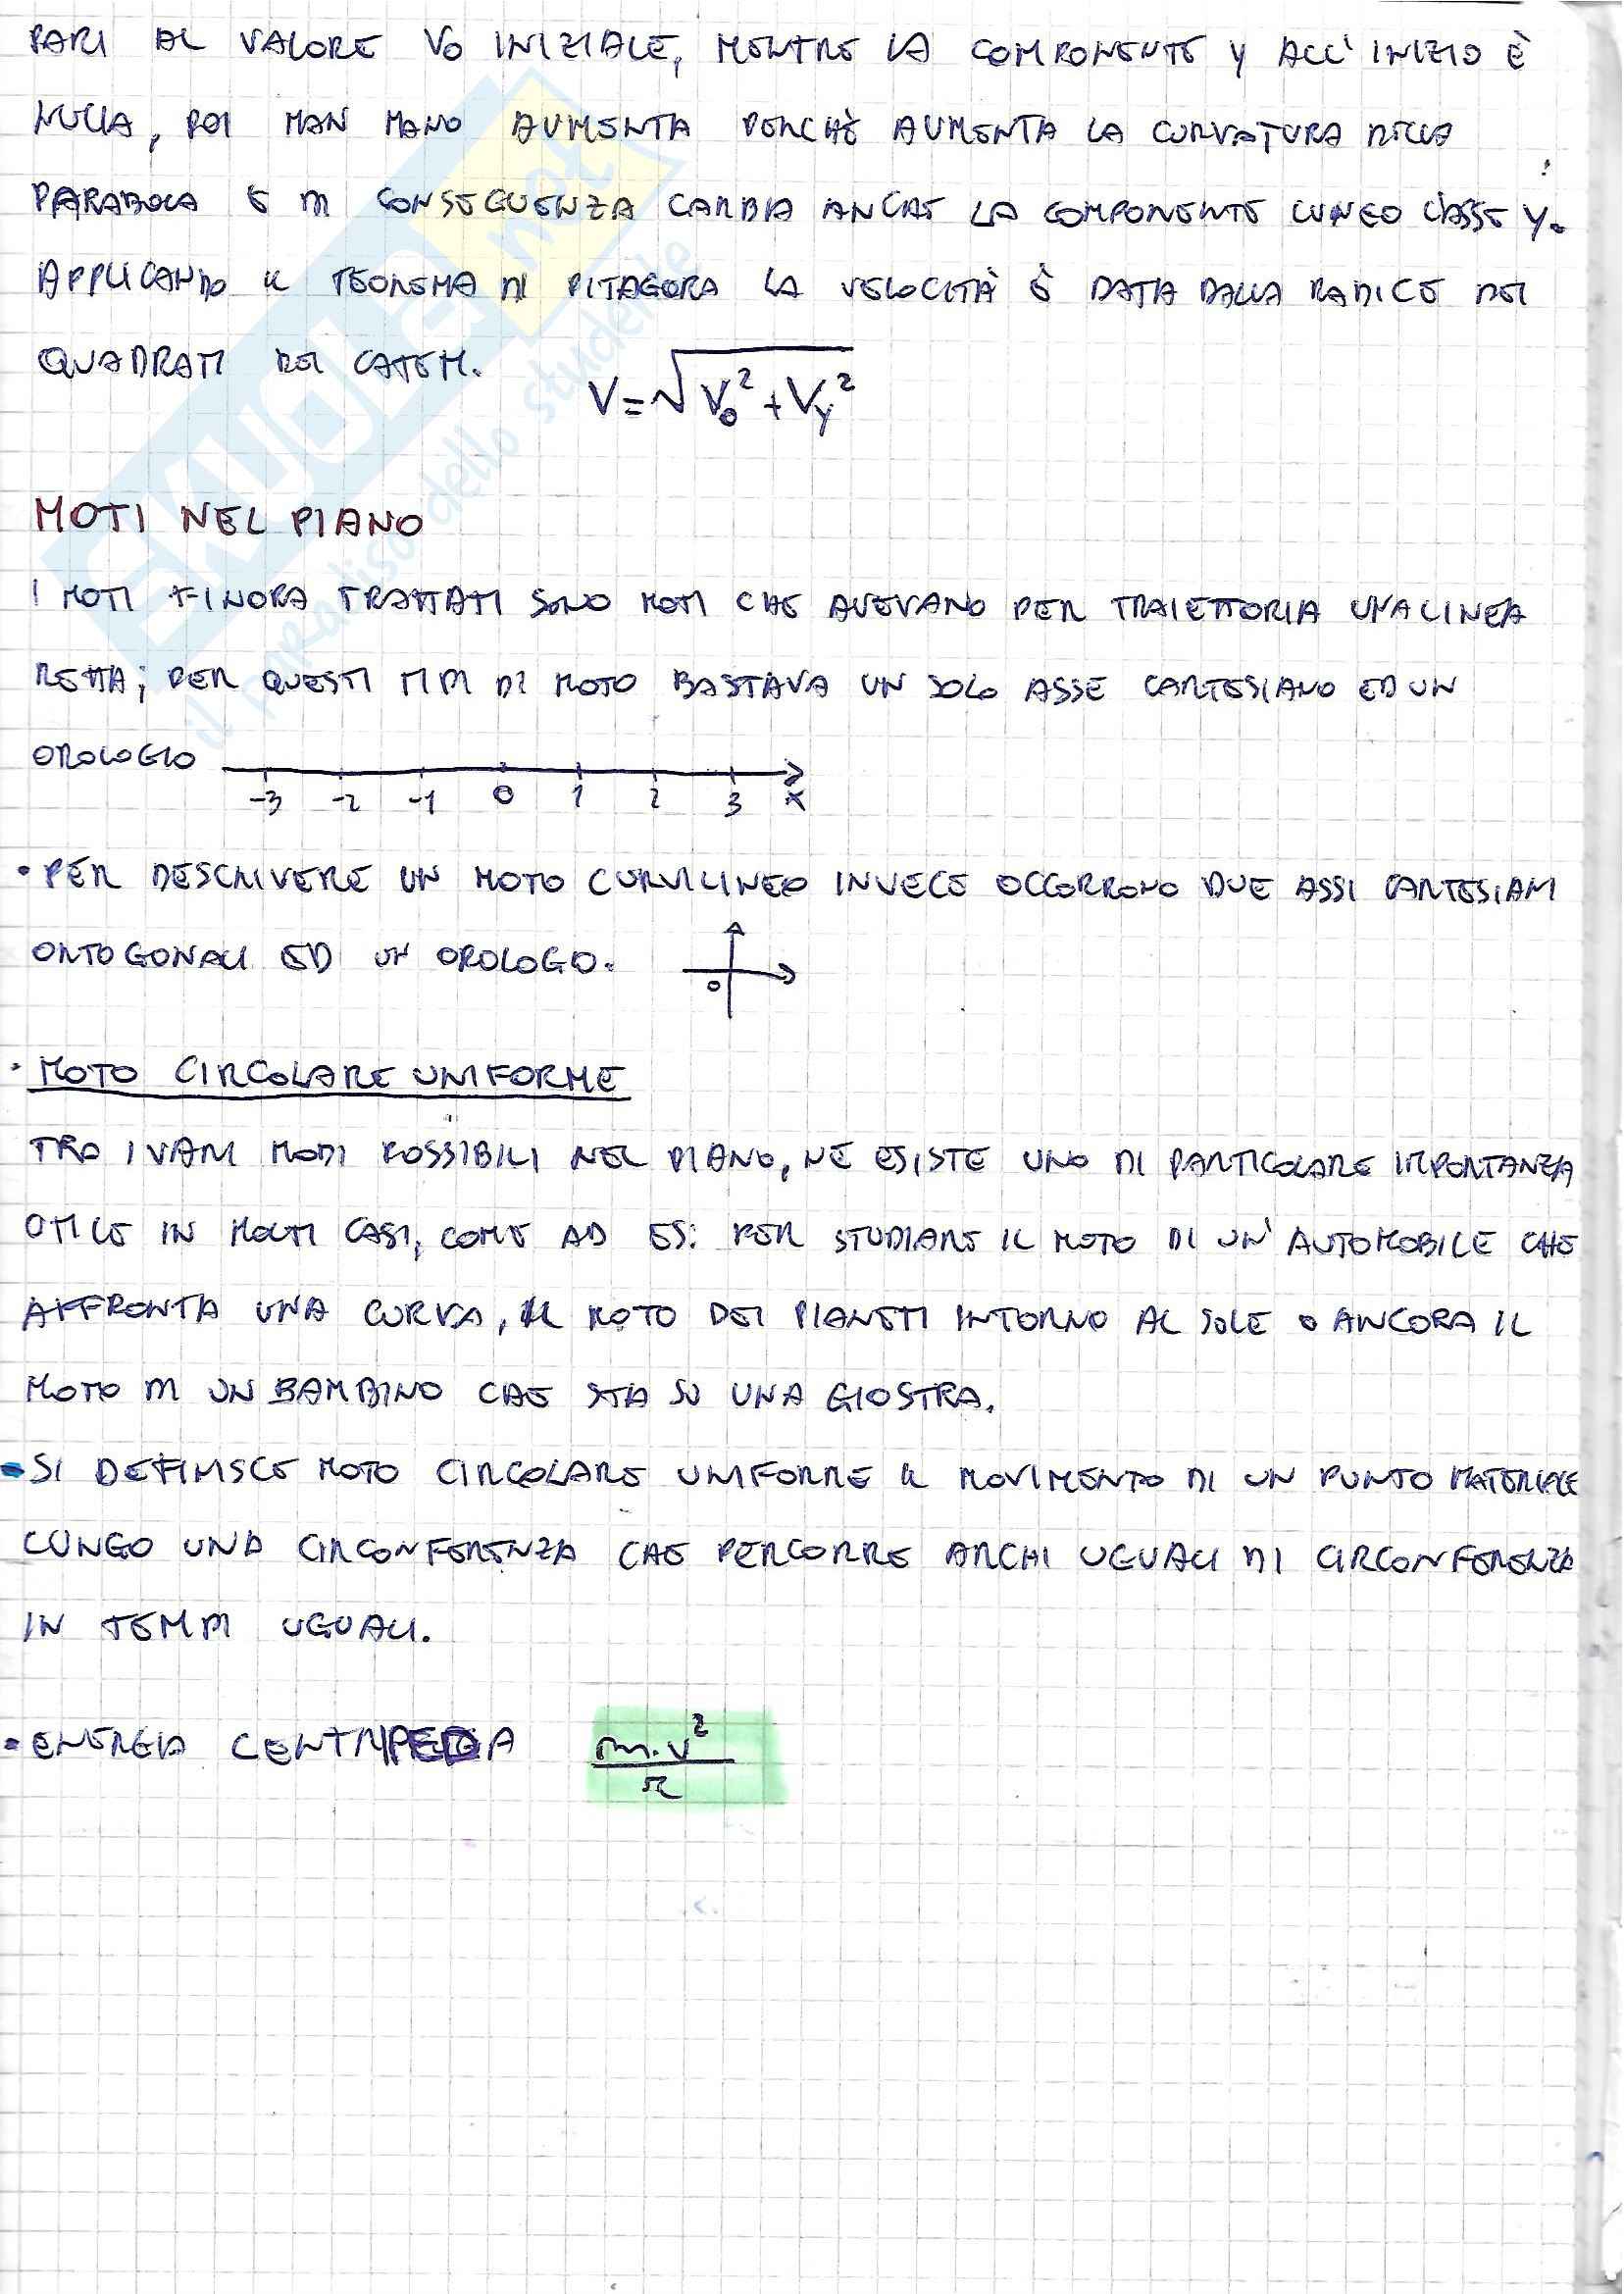 PARI AL VALORE V0 INIZIALE, MENTRE LA COMPONENTE Y ALL'INIZIO È
NULLA, POI MAN MANO AUMENTA PERCHÈ AUMENTA LA CURVATURA DELLA
PARABOLA E DI CONSEGUENZA CAMBIA ANCHE LA COMPONENTE LUNGO L'ASSE Y.
APPLICANDO IL TEOREMA DI PITAGORA LA VELOCITÀ È DATA DALLA RADICE DEI
QUADRATI DEI CATETI. V=√V₀²+Vy²
MOTI NEL PIANO
I MOTI FINORA TRATTATI SONO MOTI CHE AVEVANO PER TRAIETTORIA UNA LINEA
RETTA; PER QUESTI TIPI DI MOTO BASTAVA UN SOLO ASSE CARTESIANO ED UN
OROLOGIO
-3 -2 -1 0 1 2 3 X
• PER DESCRIVERE UN MOTO CURVILINEO INVECE OCCORRONO DUE ASSI CARTESIANI
ORTOGONALI ED UN OROLOGO.
0
• MOTO CIRCOLARE UNIFORME
TRA I VARI MODI POSSIBILI NEL PIANO, NE ESISTE UNO DI PARTICOLARE IMPORTANZA
UTILE IN MOLTI CASI, COME AD ES: PER STUDIARE IL MOTO DI UN'AUTOMOBILE CHE
AFFRONTA UNA CURVA, IL MOTO DEI PIANETI INTORNO AL SOLE O ANCORA IL
MOTO DI UN BAMBINO CHE STA SU UNA GIOSTRA.
• SI DEFINISCE MOTO CIRCOLARE UNIFORME IL MOVIMENTO DI UN PUNTO MATERIALE
LUNGO UNA CIRCONFERENZA CHE PERCORRE ARCHI UGUALI DI CIRCONFERENZA
IN TEMPI UGUALI.
• ENERGIA CENTRIPEDA m·v²/r
SKUOLA.net
il paradiso dello studente